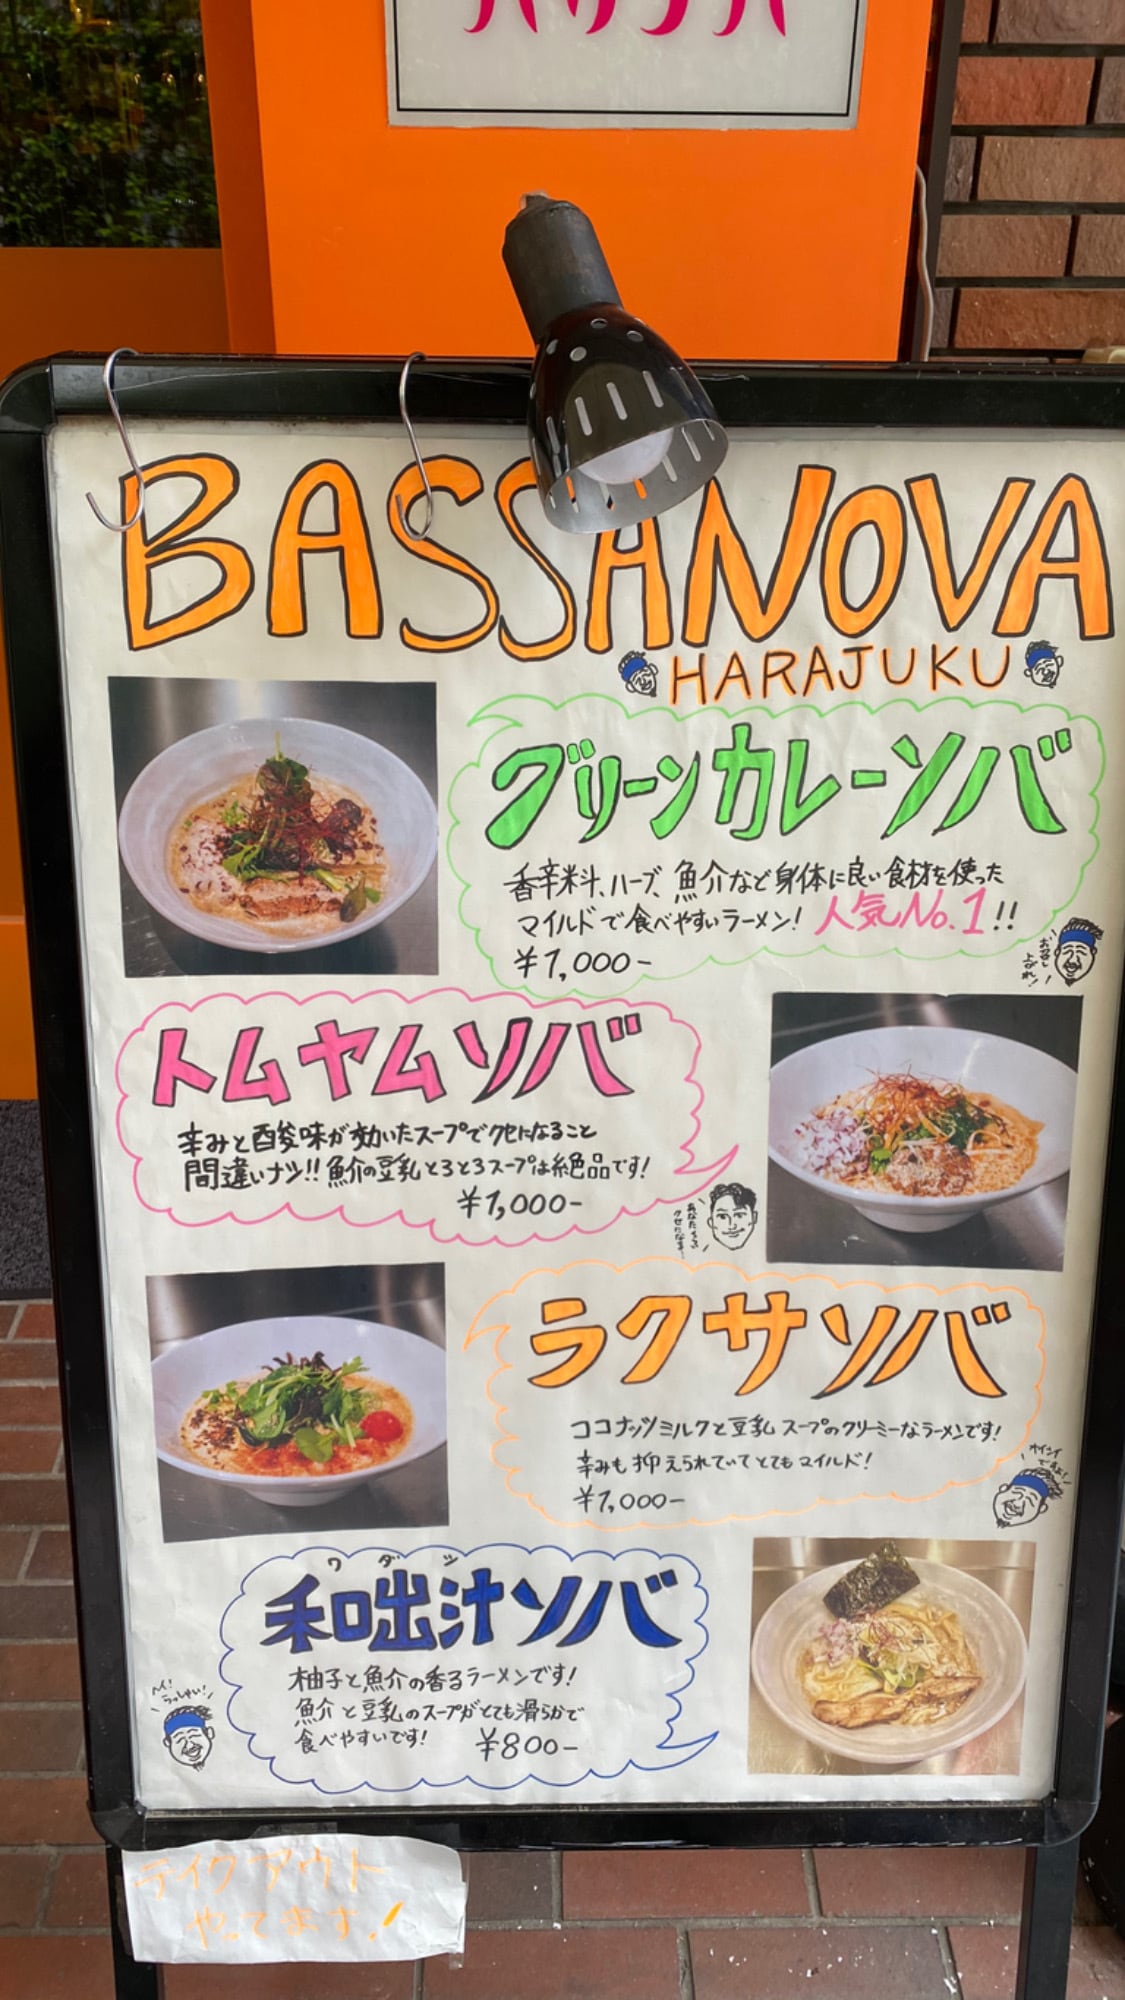 バサノバ
BASSANOVA
HARAJUKU
グリーンカレーソバ
香辛料、ハーブ、魚介など身体に良い食材を使った
マイルドで食べやすいラーメン! 人気No.1!!
¥1,000-
お召し
上がれ!
トムヤムソバ
辛みと酸味が効いたスープでクセになること
間違いナシ!! 魚介の豆乳とろとろスープは絶品です!
¥1,000-
クセになる!
ラクサソバ
ココナッツミルクと豆乳スープのクリーミーなラーメンです!
辛みも抑えられていてとてもマイルド!
¥1,000-
オイシイ
ですよ!
ワダシ
和出汁ソバ
柚子と魚介の香るラーメンです!
魚介と豆乳のスープがとても滑らかで
食べやすいです! ¥800-
ヘイ!
らっしゃい!
テイクアウト
やってます!